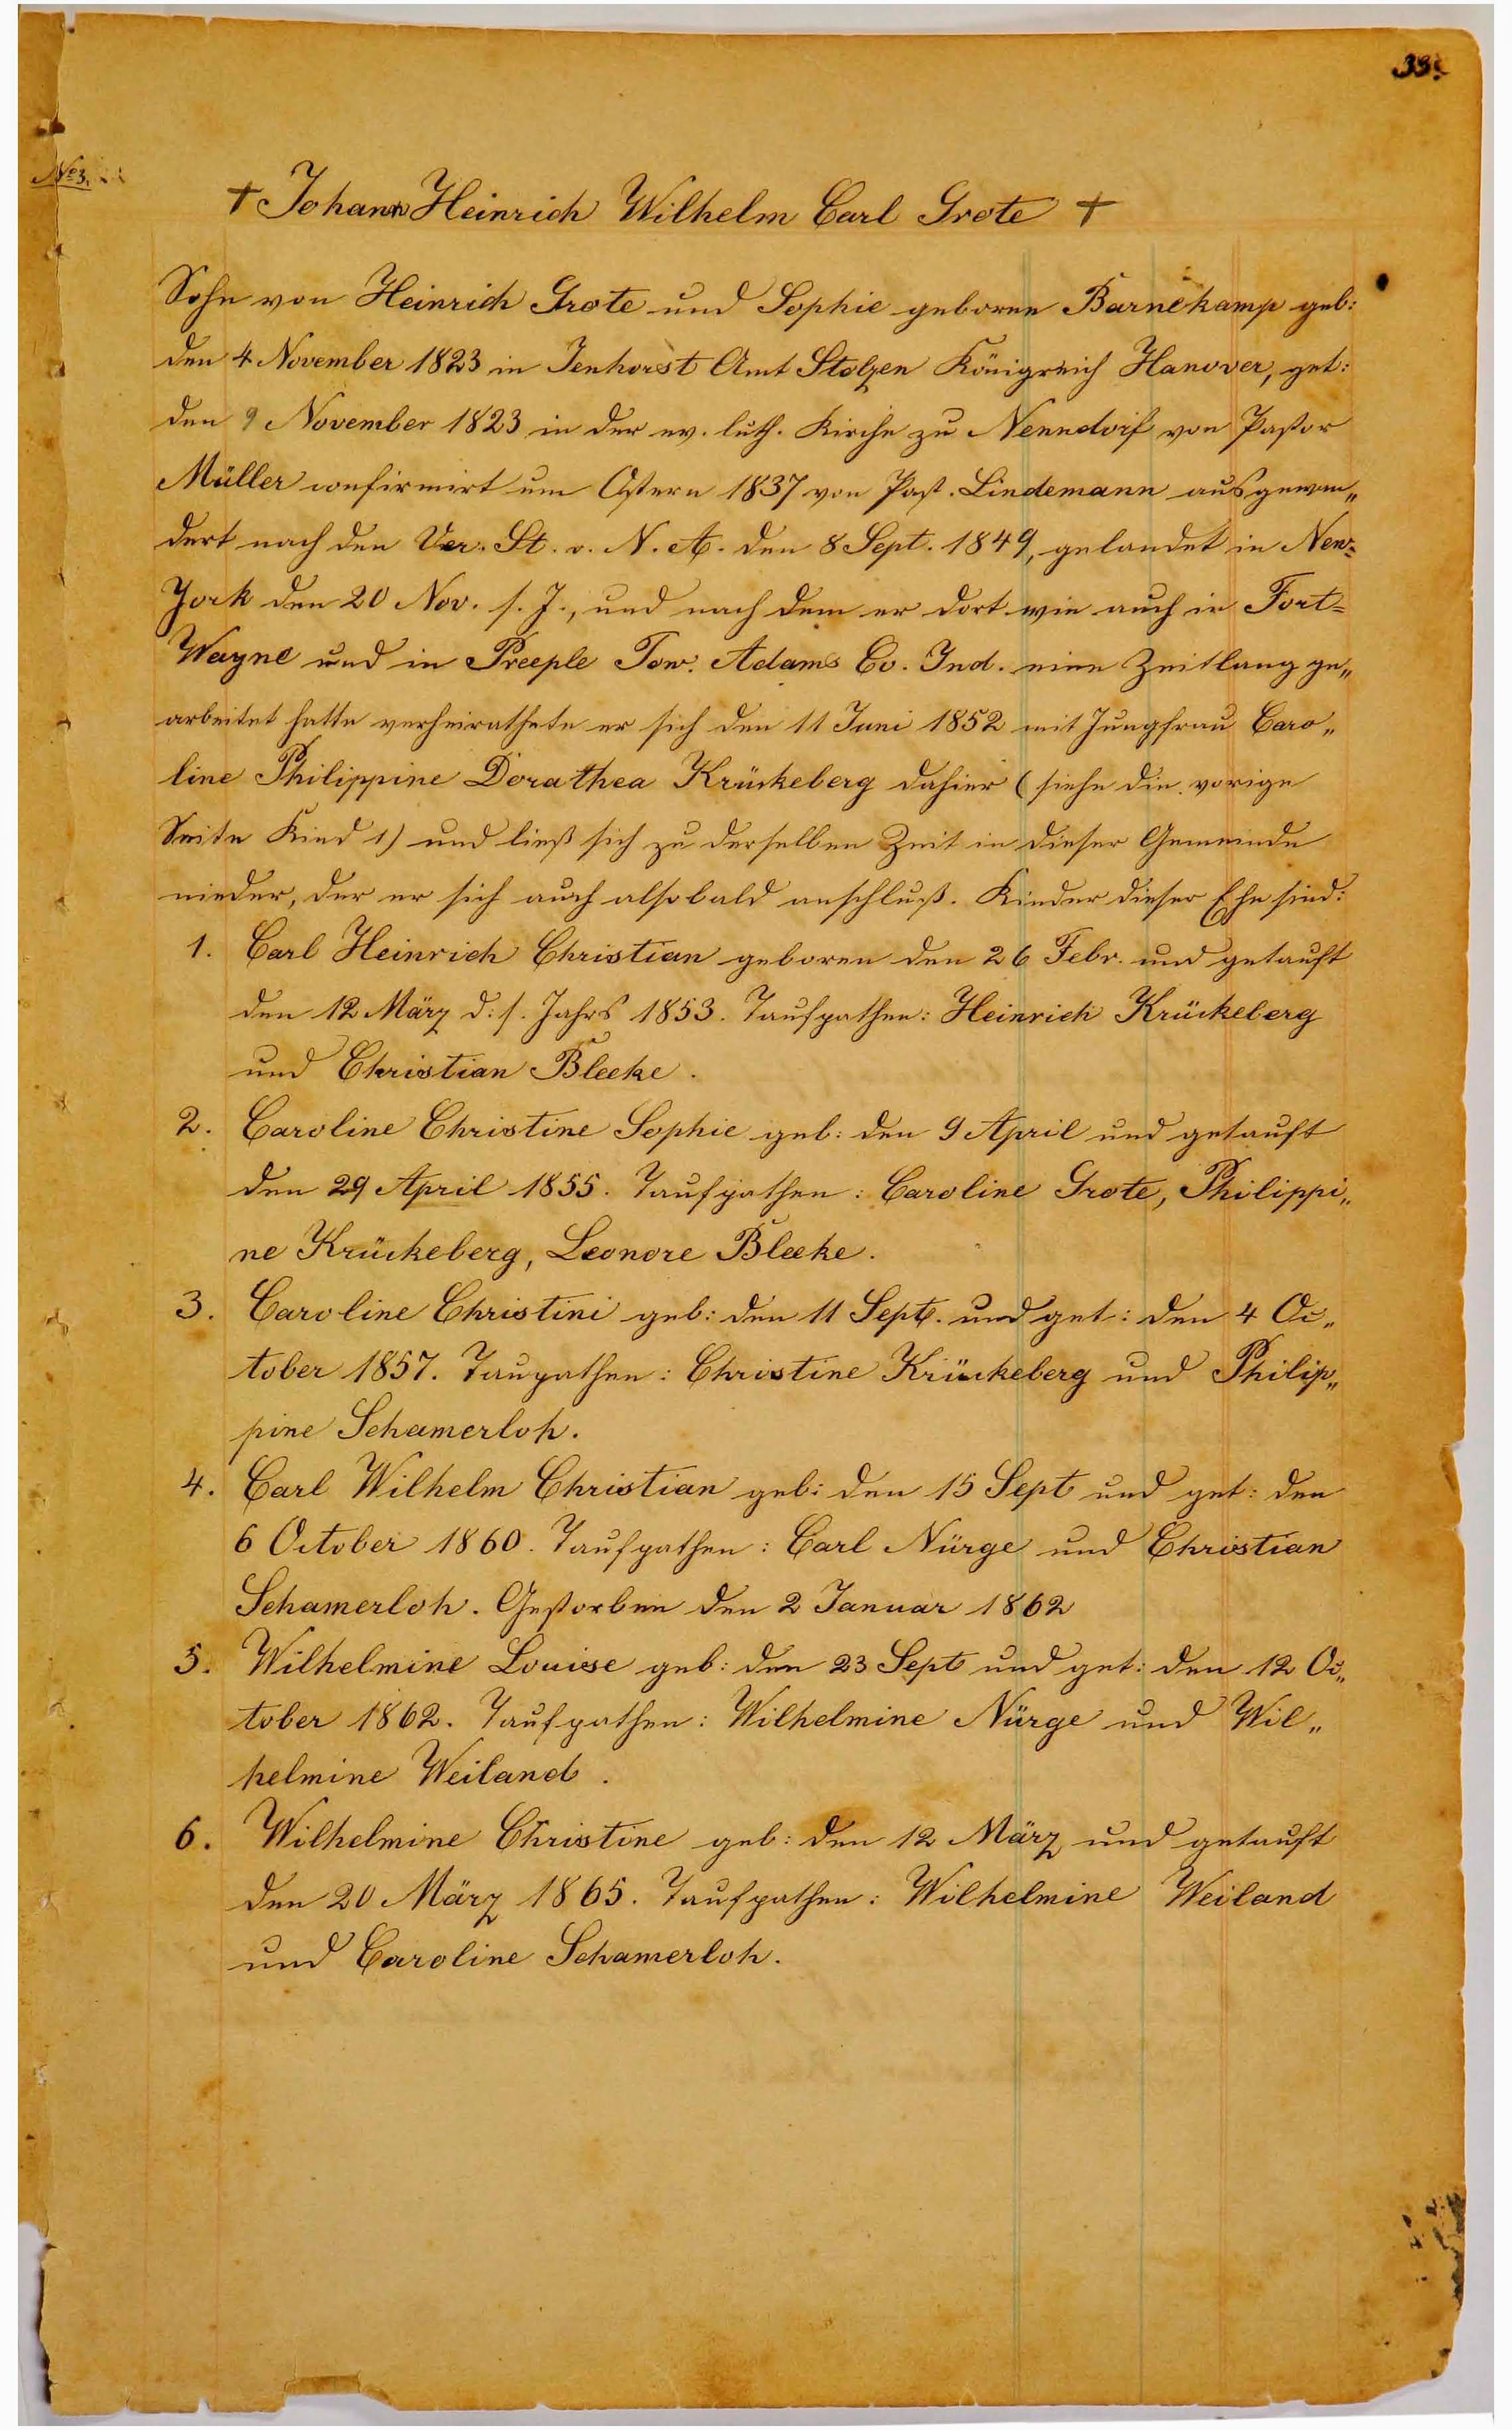 33.
No 3.
† Johann Heinrich Wilhelm Carl Grote †
Sohn von Heinrich Grote und Sophie geborne Barnekamp geb:
den 4 November 1823 in Jenhorst Amt Stolzen Königreich Hanover, get:
den 9 November 1823 in der ev. luth. Kirche zu Nenndorf von Pastor
Müller confirmirt um Ostern 1837 von Past. Lindemann ausgewan„
dert nach den Ver. St. v. N. A. den 8 Sept. 1849, gelandet in New=
York den 20 Nov. s. J., und nach dem er dort wie auch in Fort=
Wayne und in Preeple Tow. Adams Co. Ind. eine Zeitlang ge„
arbeitet hatte verheirathete er sich den 11 Juni 1852 mit Jungfrau Caro„
line Philippine Dorathea Krückeberg dahier (siehe die vorige
Seite Kind 1) und ließ sich zu derselben Zeit in dieser Gemeinde
nieder, der er sich auch alsobald anschluß. Kinder dieser Ehe sind:
1. Carl Heinrich Christian geboren den 26 Febr. und getauft
den 12 März d. s. Jahrs 1853. Taufpathen: Heinrich Krückeberg
und Christian Bleeke.
2. Caroline Christine Sophie geb: den 9 April und getauft
den 29 April 1855. Taufpathen: Caroline Grote, Philippi„
ne Krückeberg, Leonore Bleeke.
3. Caroline Christini geb: den 11 Sept. und get: den 4 Oc„
tober 1857. Taupathen: Christine Krückeberg und Philip„
pine Schamerloh.
4. Carl Wilhelm Christian geb: den 15 Sept und get: den
6 October 1860. Taufpathen: Carl Nürge und Christian
Schamerloh. Gestorben den 2 Januar 1862
5. Wilhelmine Louise geb: den 23 Sept und get: den 12 Oc„
tober 1862. Taufpathen: Wilhelmine Nürge und Wil„
helmine Weiland.
6. Wilhelmine Christine geb: den 12 März und getauft
den 20 März 1865. Taufpathen: Wilhelmine Weiland
und Caroline Schamerloh.